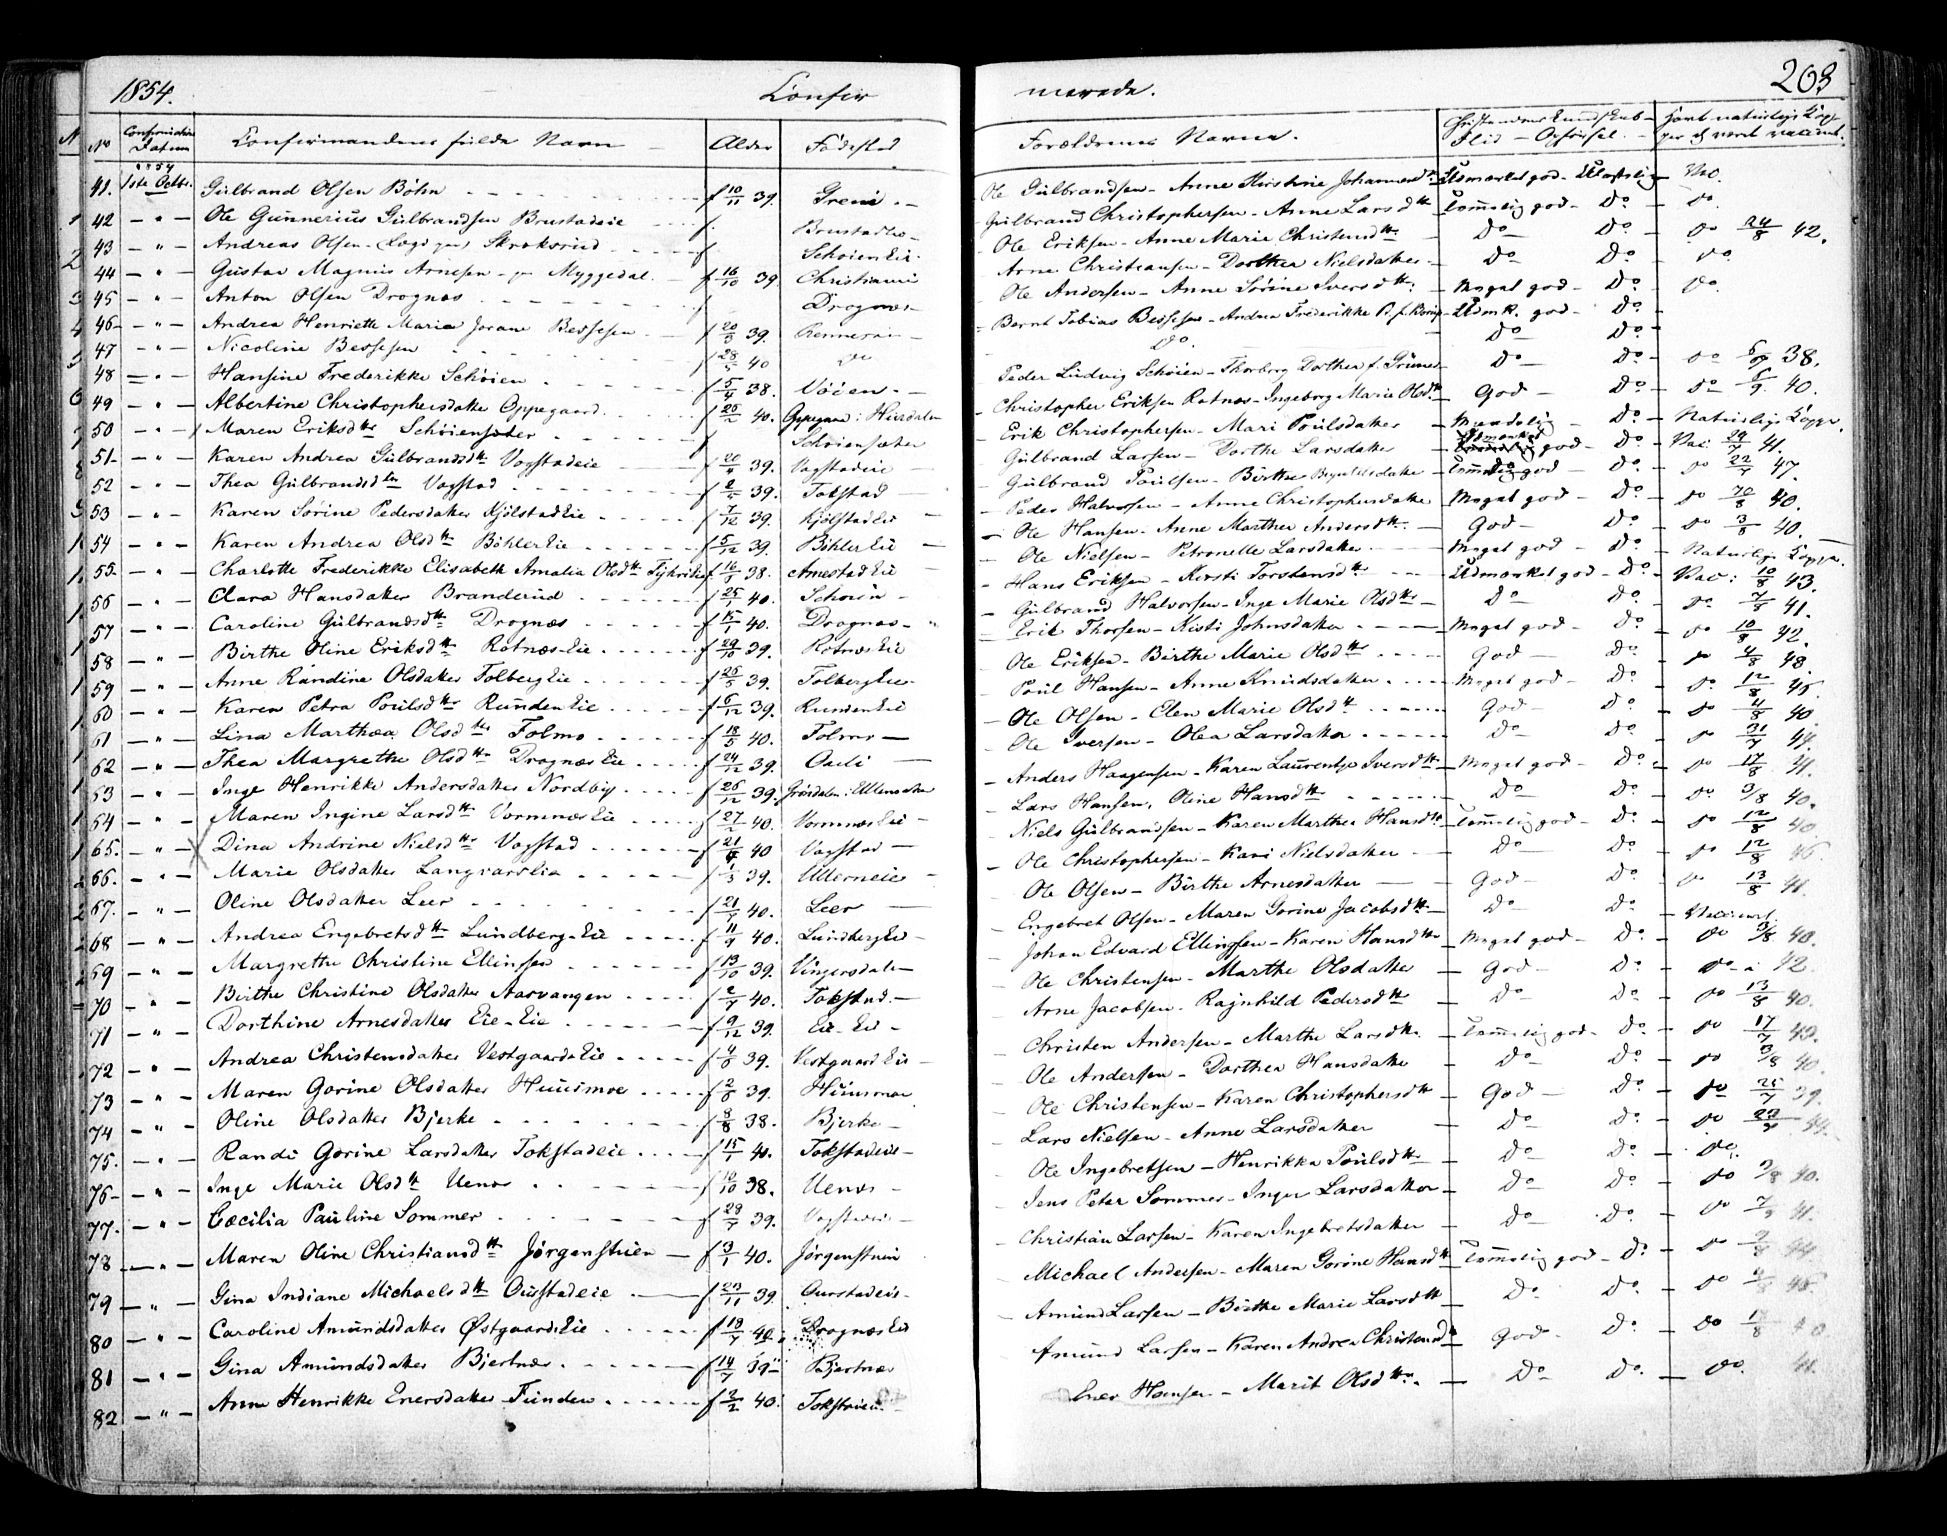 1854. Confirmerede. 203
No Confirmations Datum Confirmandens fulde Navn Alder Fødested Forældrenes Navne. Christendoms Kundskab - Flid - Opførsel. havt naturlige Kopper el. været vaccineret.
1854
41. 1ste Octbr. Gulbrand Olsen Bøhn f 10/11 39. Greni Ole Gulbrandsen - Anne Kirstine Udmærket god - Vac.
42 - " - Ole Gunnerius Gulbrandsen Brustadeie f. Gulbrand Christophersen - Anne Larsdtr Temmelig god - Do Do
43 - " - Andreas Olsen f Schøien Eie. Ole Eriksen - Anne Marie Christensdtr Do Do Do 24/8 42.
44 - " - Gustav Magnus Arnesen Myggedal f 16/10 39 Christiania Arne Christiansen - Dorthea Nielsdatter Do Do Do
45 - " - Anton Olsen Drognæs f Drognæs Ole Andersen - Anne Sørine Iversdtr. Meget god - Do Do.
46 - " - Andrea Henriette Marie Bessesen f 20/3 39. Bernt Tobias Bessesen - Andrea Frederikke Udmk. god - Do
47 - " - Nicoline Bessesen f 28/5 40 Do Do. Do Do
48 - " - Hansine Frederikke Schøien f 5/4 38. Vøien Peder Ludvig Schøien - Thorborg Dorthea Do Do Do 38.
49 - " - Albertine Christophersdatter Oppegaard f 20/2 40. Oppegaard i Hurdalen Christopher Eriksen Rotnæs - Ingeborg Marie Olsdtr God - Do Do 40.
50 - " - Maren Eriksdtr Schøiensæter f Schøiensæter Erik Christophersen - Mari Poulsdatter Do Naturlige Kopper.
51 - " - Karen Andrea Gulbrandsdtr Vogstadeie f 20/4 39. Vogstadeie Gulbrand Larsen - Dorthe Larsdatter Udmærket god - Do Vac: 29/7 41.
52 - " - Thea Gulbrandsdtr Vogstad f 2/5 39. Tokstad Gulbrand Poulsen - Birthe Temmelig god - Do Do 22/7 47.
53 - " - Karen Sørine Pedersdatter Kjølstad Eie f 7/12 39. Kjølstad Eie Peder Halvorsen - Anne Christophersdatter Meget god - Do Do 40.
54 - " - Karen Andrea Olsdtr Bøhler Eie f 5/12 39. Bøhler Eie Ole Hansen - Anne Marthea Andersdtr. God - Do Do 3/8 40.
55 - " - Charlotte Frederikke Elisabeth Amalia Olsdtr f 16/1 38. Arnestad Eie Ole Nielsen - Petronelle Larsdatter Meget god - Do Naturlige Kopper.
56 - " - Clara Hansdatter Branderud f 25/1 40. Schøien Hans Eriksen - Kersti Torstensdtr Udmærket god - Do Vac: 10/8 43.
57 - " - Caroline Gulbrandsdtr Drognæs f 15/1 40. Drognæs Gulbrand Halvorsen - Inge Marie Olsdtr Do Do Do 7/8 41.
58 - " - Birthe Oline Eriksdtr Rotnæs Eie f 29/10 39. Rotnæs Eie Erik Thorsen - Kisti Johnsdatter Meget god - Do Do 10/8 42.
59 - " - Anne Randine Olsdatter Tolberg Eie f 25/5 39. Tolberg Eie Ole Eriksen - Birthe Marie Olsdtr God - Do Do 4/8 48.
60 - " - Karen Petra Poulsdtr Runden Eie f 6/12 39. Runden Eie Poul Hansen - Anne Knudsdatter Meget god - Do Do 12/8 45.
61 - " - Lina Marthea Olsdtr Folmo f 18/5 40. Folmo Ole Olsen - Elen Marie Olsdtr God - Do Do 4/8 40.
62 - " - Thea Margrethe Olsdtr Drognæs Eie f 24/12 39. Ole Iversen - Olea Larsdatter Do Do Do 31/7 44.
63 - " - Inge Henrikke Andersdatter Nordby f 26/12 39. Anders Haagensen - Karen Laurentze Iversdtr Meget god - Do Do 17/8 41.
64 - " - Maren Ingine Larsdtr Vormnæs Eie f 27/2 40. Vormnæs Eie Lars Hansen, Oline Hansdtr Do Do Do 3/8 40.
65. - " - Dina Andrine Nielsdtr Vogstad f 21/4 40 Vogstad Niels Gulbrandsen - Karen Marthea Hansdtr Temmelig god - Do Do 12/8 40.
66. - " - Marie Olsdatter f 1/3 39. Ullerneie Ole Christophersen - Kari Nielsdatter Do Do Do 12/8 46
67. - " - Oline Olsdatter Leer f 21/7 40. Leer Ole Olsen - Birthe Arnesdatter God - Do Do 13/8 41.
68 - " - Andrea Engebretsdtr Lundberg Eie f 11/9 40. Lundberg Eie Engebret Olsen - Maren Gorine Jacobsdtr Do Do
69 - " - Margrethe Christine Ellingsen f 13/10 39. Vingersdalen Johan Edvard Ellingsen - Karen Hansdtr Meget god - Do Do 3/8 40.
70 - " - Birthe Christine Olsdatter Aarvangen f 2/7 40. Tokstad Ole Christensen - Marthe Olsdatter God Do Do 42
71 - " - Dorthine Arnesdatter Eie-Eie f 9/12 39. Eie-Eie Arne Jacobsen - Ragnhild Pedersdtr Do Do Do 13/8 40.
72 - " - Andrea Christensdatter Vestgaards Eie f 4/8 39. Vestgaard Eie Christen Andersen - Marthe Larsdtr. Temmelig god - Do Do 17/7 43.
73 - " - Maren Gorine Olsdatter Huusmoe f 2/8 39. Huusmoe Ole Andersen - Dorthea Hansdatter Do Do Do 3/8 40.
74 - " - Oline Olsdatter Bjerke f 8/8 38. Bjerke Ole Christensen - Karen Christophersdtr God - Do Do 25/7 39.
75. - " - Randi Gorine Larsdatter Tokstadeie f 15/1 40. Tokstadeie Lars Nielsen - Anne Larsdatter Do Do Do
76 - " - Inge Marie Olsdtr Uenæs f 10/10 38. Uenæs Ole Ingebretsen - Henrikka Poulsdtr Do Do Do.
77. - " - Cæcilia Pauline Sommer f 28/7 39. Vogstadeie Jens Peter Sommer - Inger Larsdatter Do Do Do 3/8 40.
78 - " - Maren Oline Christiansdtr Jørgenstuen f 3/1 40. Jørgenstuen Christian Larsen - Karen Ingebretsdatter Do Do Do 41.
79 - " - Gina Indiane Michaelsdtr Oustadeie f 29/11 39 Ourstadeie Michael Andersen - Maren Gorine Hansdtr Temmelig god - Do Do 44
80 - " - Caroline Amundsdatter Østgaards Eie f 19/7 40. Drognæs Eie Amund Larsen - Birthe Marie Larsdtr Do Do Do 45.
81 - " - Gina Amundsdatter Bjertnæs f 14/7 39 Bjertnæs Amund Larsen - Karen Andrea Christensdtr God - Do Do
82 - " - Anne Henrikke Enersdatter Funden f 2/2 40. Tokstadeie Ener Hansen - Marit Olsdtr. Do Do. Do.